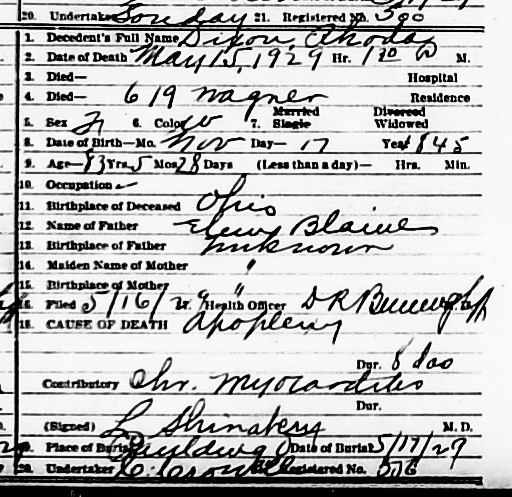 20. Undertaker Sonday 21. Registered No. 500
1. Decedent's Full Name Dixon, Rhoda
2. Date of Death May 15, 1929 Hr. 1 30 P M.
3. Died— Hospital
4. Died— 619 Wagner Residence
Married Divorced
5. Sex F 6. Color W 7. Single Widowed
8. Date of Birth—Mo. Nov Day— 17 Year 1845
9. Age—83 Yrs. 5 Mos. 28 Days (Less than a day)— Hrs. Min.
10. Occupation
11. Birthplace of Deceased Ohio
12. Name of Father Blaine
13. Birthplace of Father Unknown
14. Maiden Name of Mother "
15. Birthplace of Mother "
16. Filed 5/16/29 Hr. Health Officer D R
18. CAUSE OF DEATH Apoplexy
Dur. 8 das
Contributory Chr. Myocarditis
Dur.
(Signed) L M. D.
19. Place of Burial Paulding O Date of Burial 5/17/29
20. Undertaker Registered No. 576